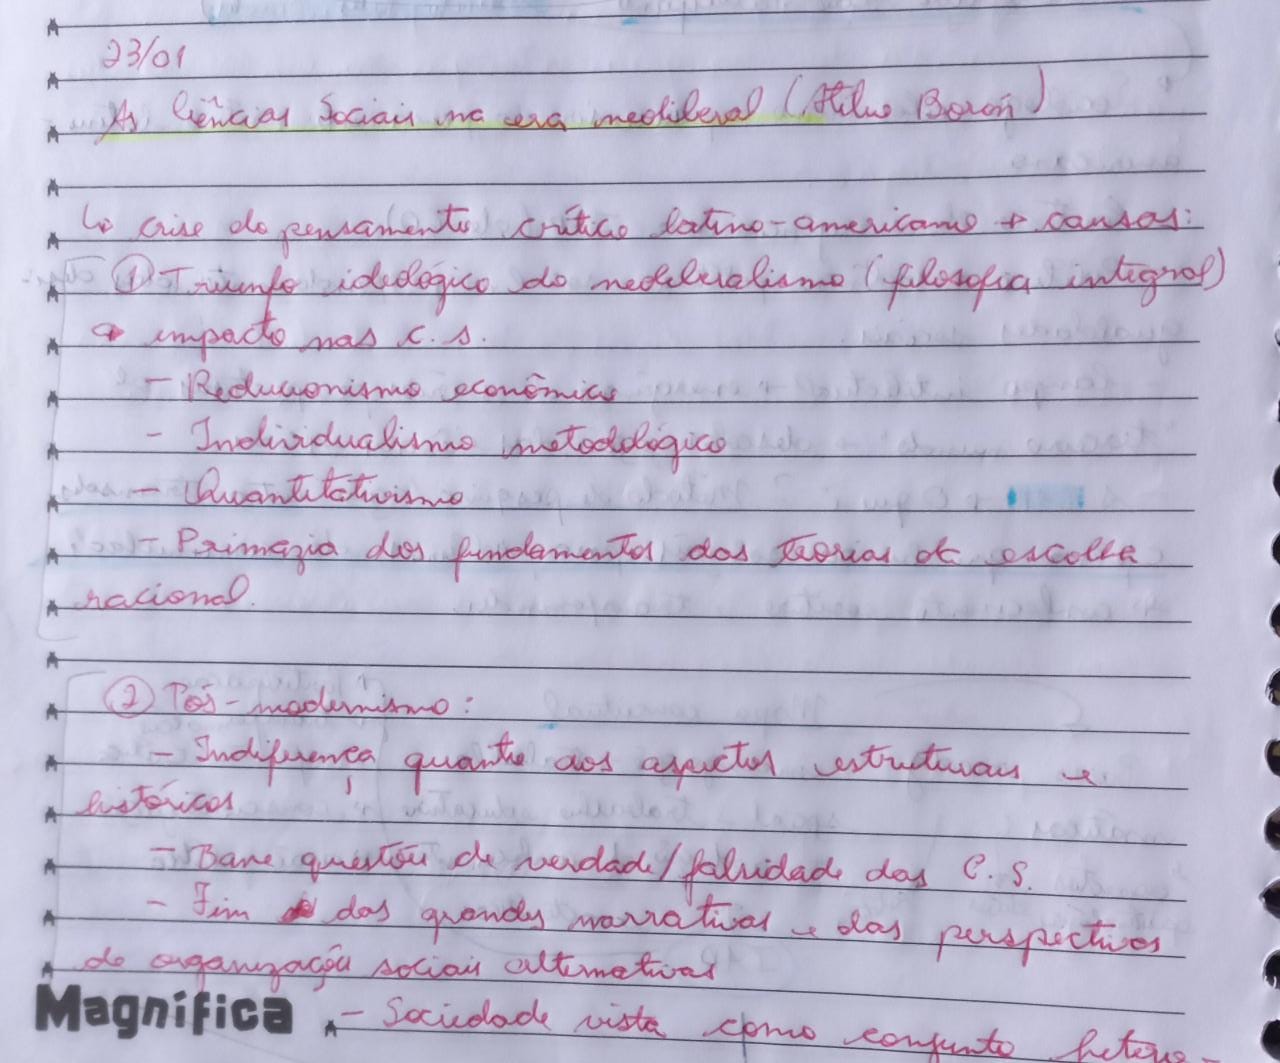 23/01
As Ciências Sociais na era neoliberal (Atilio Borón)
↳ crise do pensamento crítico latino-americano → causas:
① Triunfo ideológico do neoliberalismo (filosofia integral)
↳ impacto nas C.S.
- Reducionismo econômico
- Individualismo metodológico
- Quantitativismo
- Primazia dos fundamentos das teorias de escolha
racional.
② Pós-modernismo:
- Indiferença quanto aos aspectos estruturais e
históricos
- Bane questões de verdade/falsidade das C.S.
- Fim das grandes narrativas e das perspectivas
de organização sociais alternativas
- Sociedade vista como conjunto hetero
Magnífica